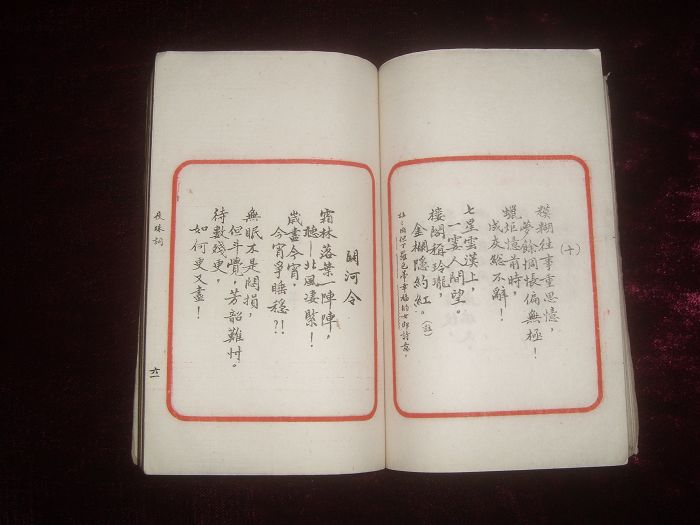 (十)
糢糊往事重思憶，
夢餘惆悵偏無極！
蠟炬憶前時，
成灰總不辭！
七星雲漢上，
一霎人間望。
樓閣稱玲瓏，
金欄隱約紅。(註)
關河令
霜林落葉一陣陣，
聽—北風淒緊！
歲盡今宵，
今宵爭睡穩？！
無眠不是閑損，
但斗覺，芳韶難忖。
待數殘更，
如何更又盡！
夜珠詞
六一